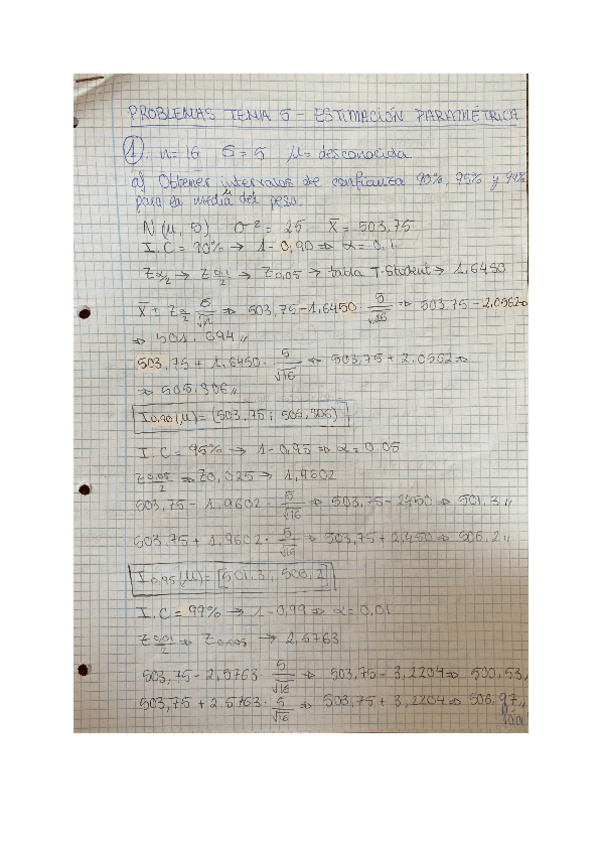 PROBLEMAS TEMA 5 - ESTIMACIÓN PARAMÉTRICA
1. n= 16 σ = 5 μ = desconocida
a) Obtener intervalos de confianza 90%, 95% y 99%
para la media μ del peso.
N(μ, 5) σ² = 25 x̄ = 503,75
I.C = 90% → 1-0,90 ⇒ α = 0,1
Zα/2 → Z 0,1/2 → Z0,05 → tabla T-Student → 1,6450
x̄ ± Z α/2 σ/√n ⇒ 503,75 - 1,6450 · 5/√16 ⇒ 503,75 - 2,0562 ⇒
⇒ 501,694 //
503,75 + 1,6450 · 5/√16 ⇒ 503,75 + 2.0562 ⇒
⇒ 505.806 //
I 0,90 (μ) = (503,75 ; 505,806)
I. C = 95% → 1-0,95 ⇒ α = 0.05
Z 0,05/2 ⇒ Z0,025 → 1,9602
503,75 - 1,9602 · 5/√16 ⇒ 503,75 - 2,450 ⇒ 501,3 //
503,75 + 1,9602 · 5/√16 ⇒ 503,75 + 2,450 ⇒ 506,2 //
I 0,95 (μ) = [501,3 ; 506,2]
I. C = 99% → 1-0,99 ⇒ α = 0,01
Z 0,01/2 ⇒ Z0,005 → 2,5763
503,75 - 2,5763 · 5/√16 ⇒ 503,75 - 3,2204 ⇒ 500,53 //
503,75 + 2.5763 · 5/√16 ⇒ 503,75 + 3,2204 ⇒ 506,97 //